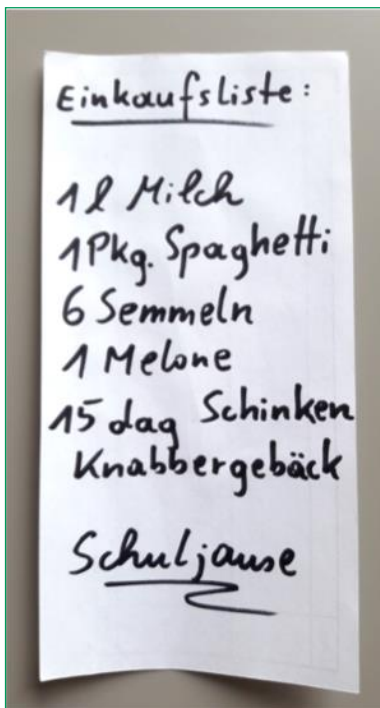 Einkaufsliste:
1 l Milch
1 Pkg. Spaghetti
6 Semmeln
1 Melone
15 dag Schinken
Knabbergebäck
Schuljause